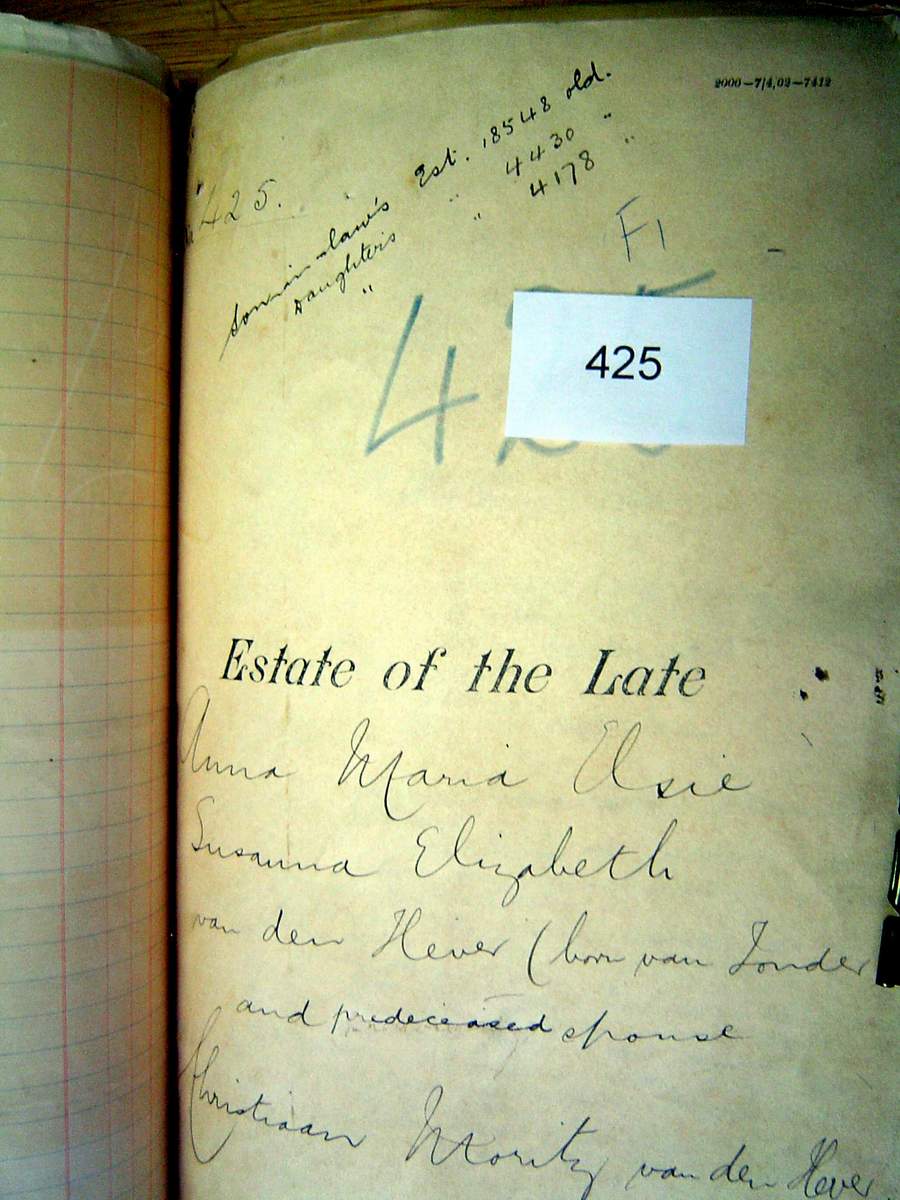 2000—7/4,02—7412
425.
Son-in-law's Est. 18548 old.
Daughters " 4430 "
" " 4178 "
F1
425
425
Estate of the Late
Anna Maria Elsie
Susanna Elizabeth
van den Hever (born van Zonder
and predeceased spouse
Christiaan Moritz van den Hever